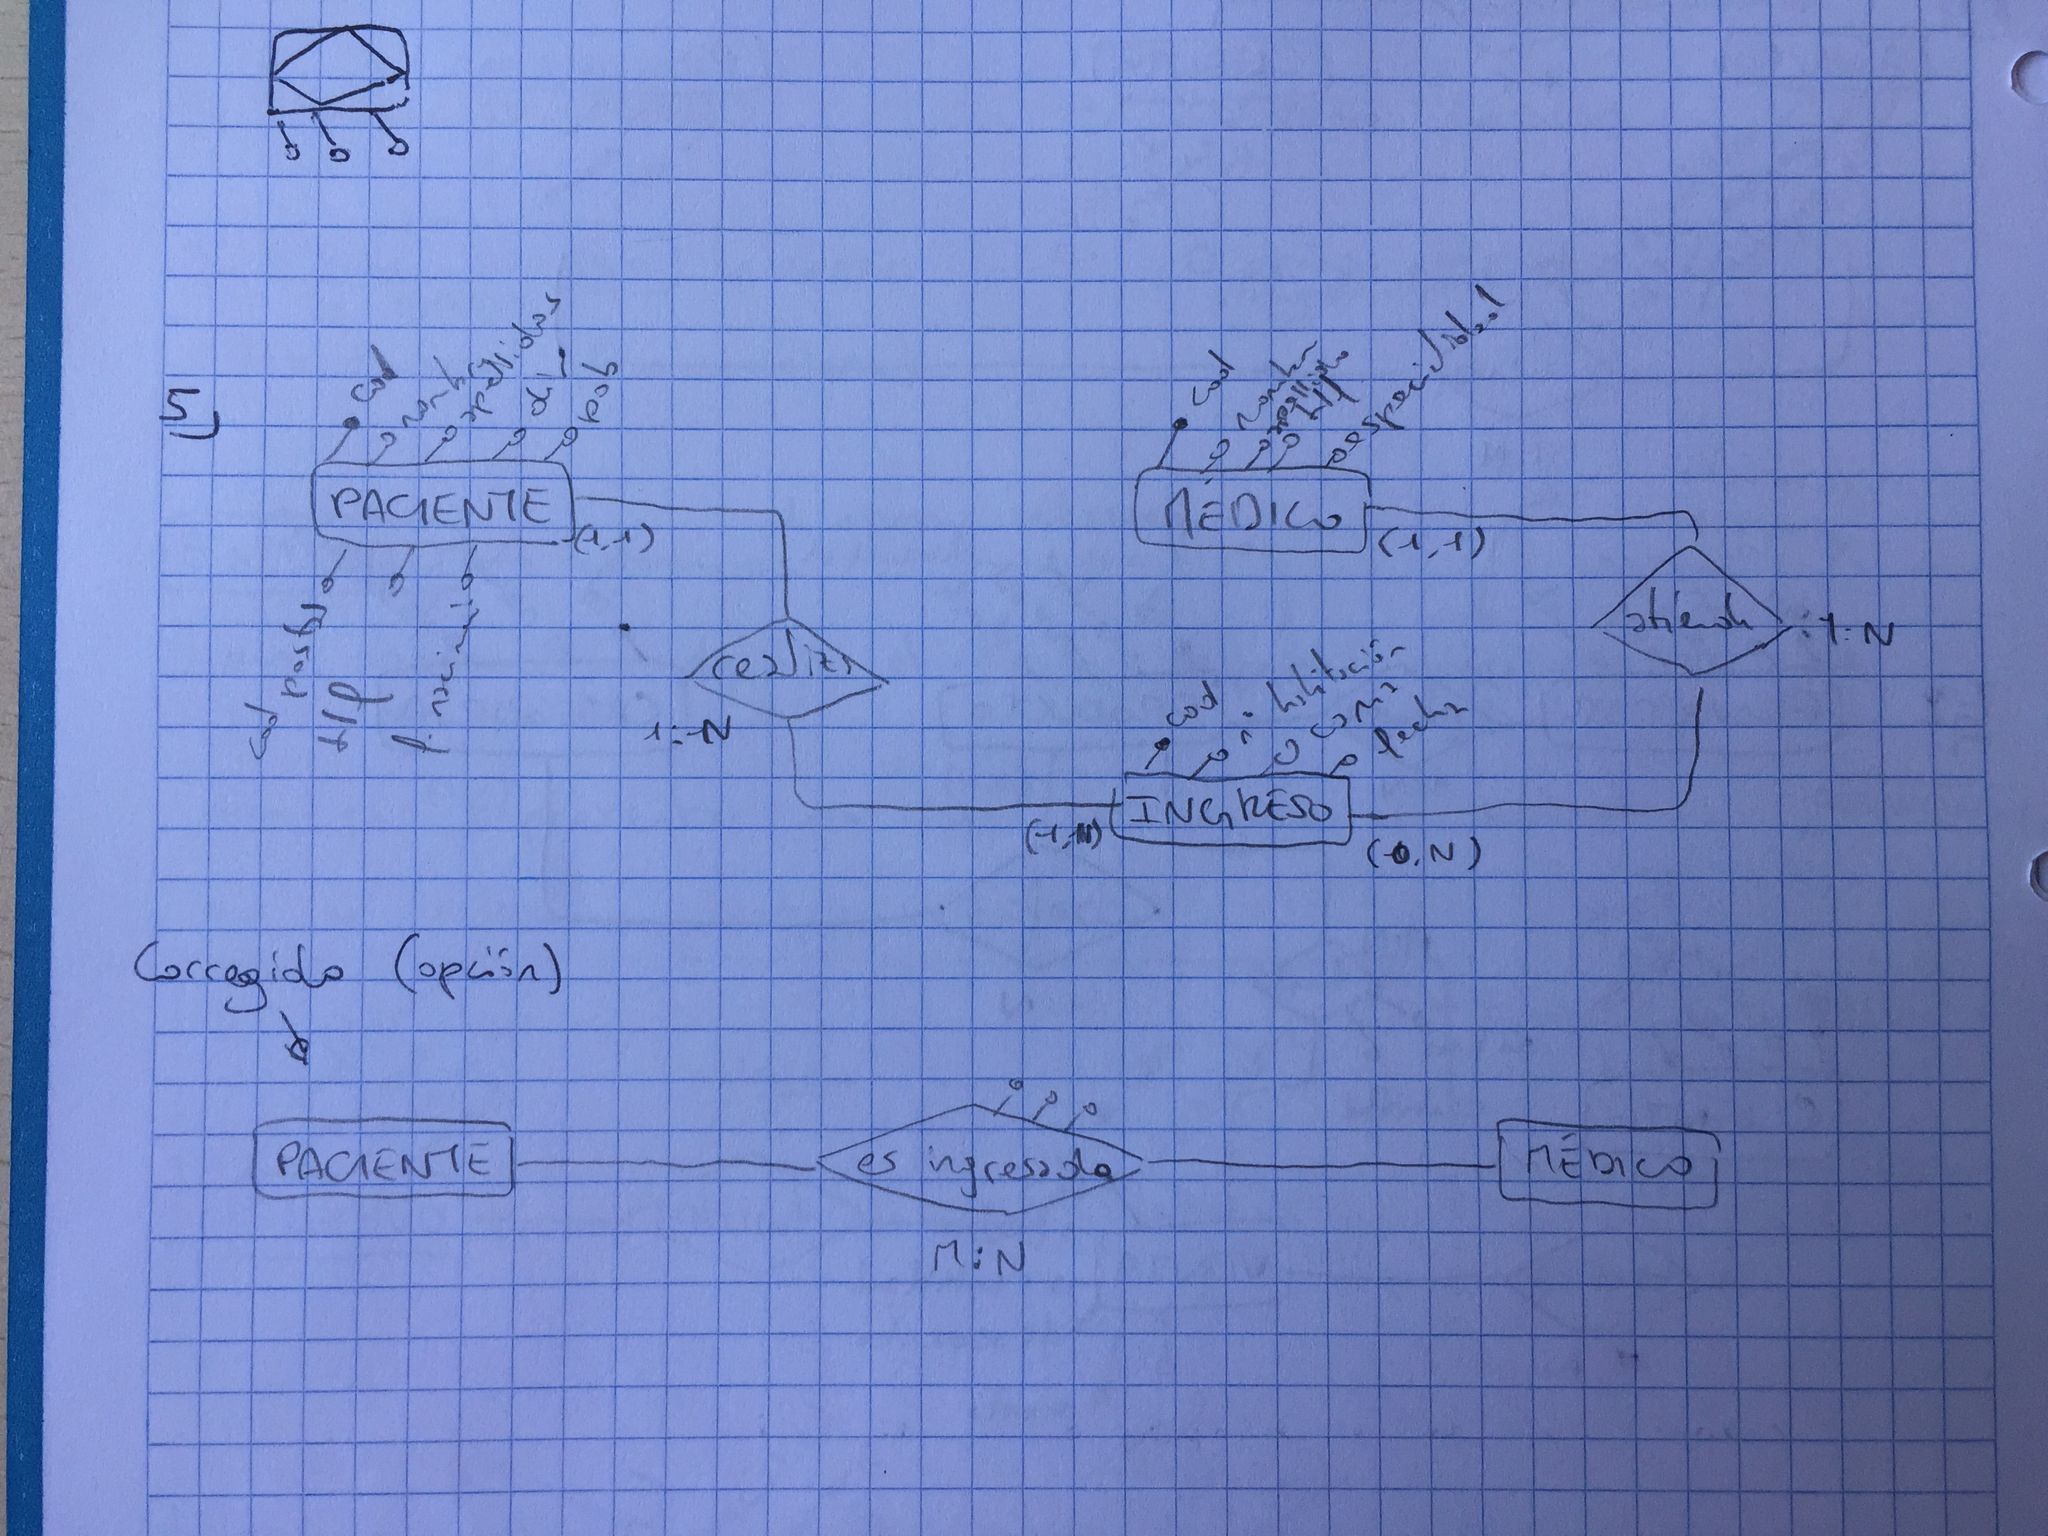 5)
cod
nomb
apellidos
dir
pob
PACIENTE
(1,1)
cod postal
tlf
f. nacimi
cod
nombre
apellidos
tlf
especialidad
MÉDICO
(1,1)
realiza
1:N
atiende
1:N
cod
nº habitación
cama
fecha
INGRESO
(1,N)
(0,N)
Corregido (opción)
PACIENTE
es ingresado
MÉDICO
M:N